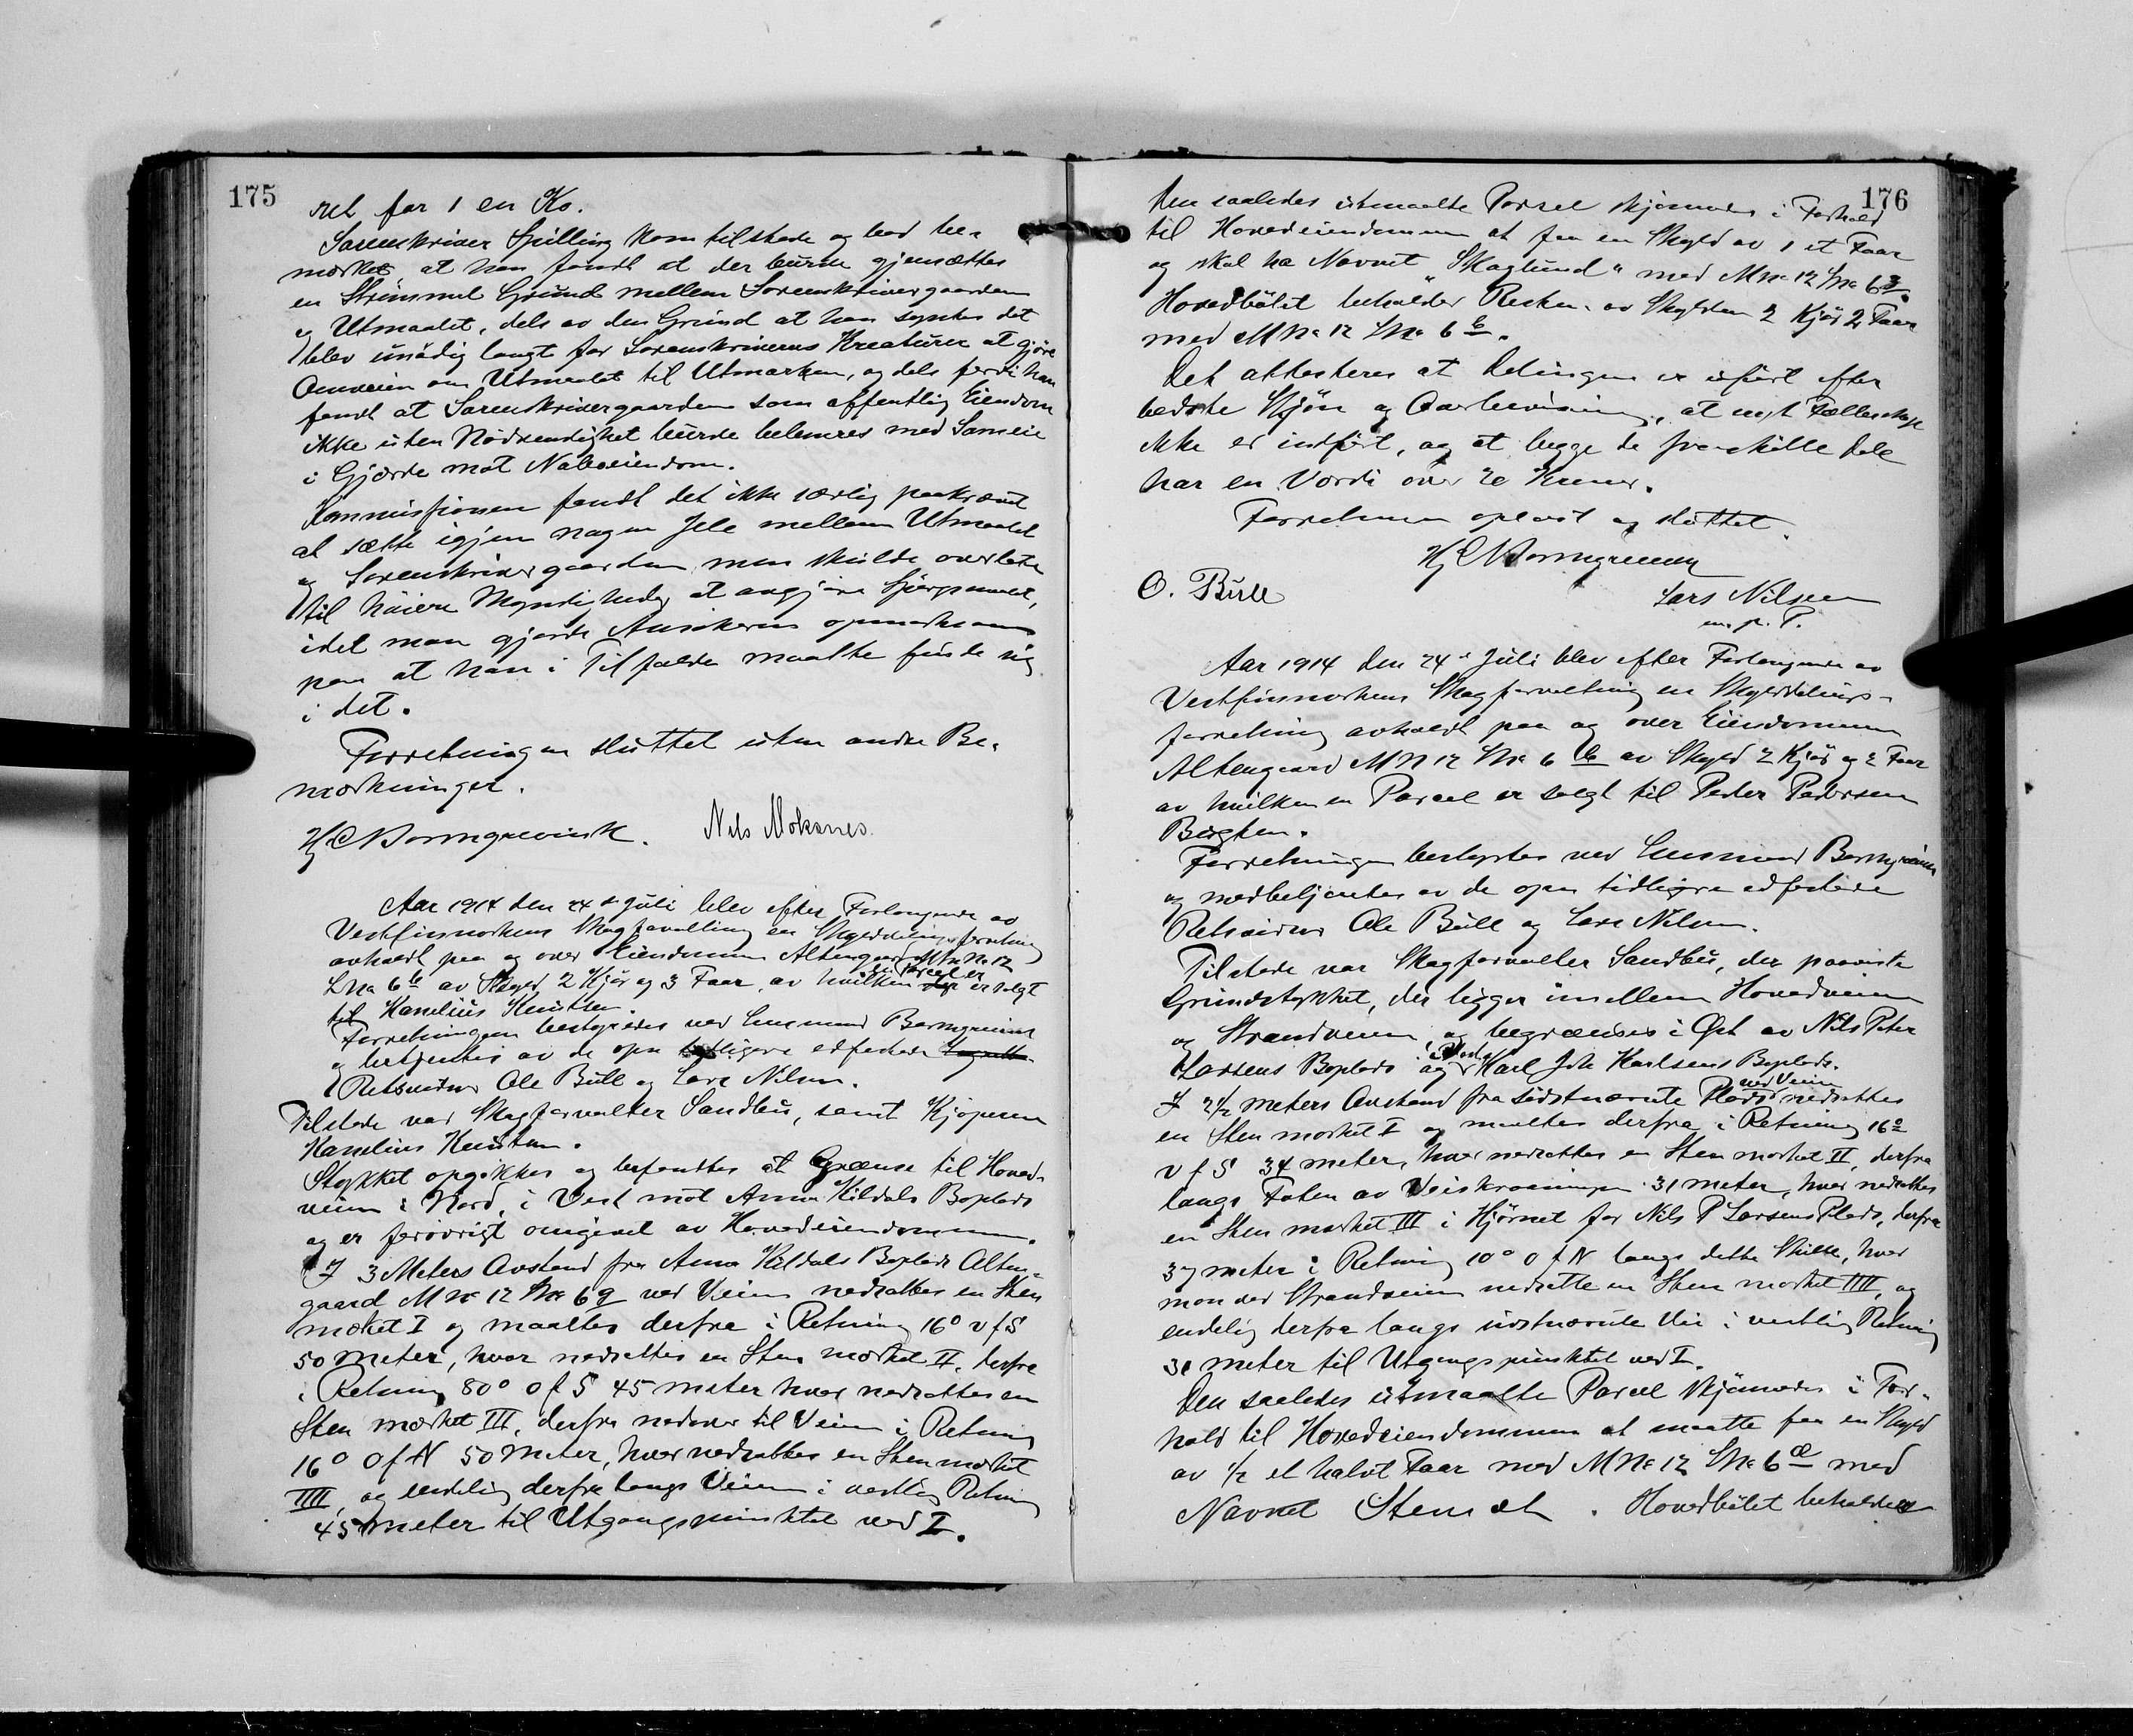 175
ret for 1 en Ko.
Sorenskriver Spilling kom tilstede og bad be-
merket at han fandt at der burde gjensættes
en Strimmel Grund mellem Sorenskrivergaarden
og Utmaalet, dels av den Grund at han syntes det
blev unødig langt for Sorenskriverens Kreaturer at gjøre
Omveien om Utmaalet til Utmarken, og dels fordi han
fandt at Sorenskrivergaarden som offentlig Eiendom
ikke uten Nødvendighet burde belemres med Sameie
i Gjærde mot Naboeiendom.
Kommissionen fandt det ikke særlig paakrævet
at sætte igjen nogen Jele mellem Utmaalet
og Sorenskrivergaarden men skulde overlate
til høiere Myndigheder at avgjøre Spørgsmaalet,
idet man gjorde Ansøkeren opmerksom
paa at han i Tilfælde maatte finde sig
i det.
Forretningen sluttet uten andre Be-
merkninger.
Hj C Bormgrevink. Nils Moksnes.
Aar 1914 den 24de Juli blev efter Forlangende av
Vestfinmarkens Skogforvaltning en Skylddelingsforretning
avholdt paa og over Eiendommen Altengaard M No 12
L No 6b av Skyld 2 Kjør og 3 Faar, av hvilken en Parcel er solgt
til Kornelius Knutsen.
Forretningen bestyredes ved Lensmand Bormgrevink
og betjentes av de opn tidligere edfæstede
Retsvidner Ole Bull og Lars Nilsen.
Tilstede var Skogforvalter Sandbu, samt Kjøperen
Kornelius Knutsen.
Stykket opgikkes og befandtes at Grænse til Hoved-
veien i Nord, i Vest mot Anna Kildals Boplads
og er forøvrigt omgivet av Hovedeiendommen.
I 3 Meters Avstand fra Anna Kildals Boplads Alten-
gaard M No 12 L No 6 q ved Veien nedsattes en Sten
merket I og maaltes derfra i Retning 16° v f S
50 Meter, hvor nedsattes en Sten merket II, derfra
i Retning 80° o f S 45 meter hvor nedsattes en
Sten merket III, derfra nedover til Veien i Retning
16° o f N 50 Meter, hvor nedsattes en Sten merket
IIII, og endelig derfra langs Veien i vestlig Retning
45 meter til Utgangspunktet ved I.
176
Den saaledes utmaalte Parcel skjønnedes i Forhold
til Hovedeiendommen at faa en Skyld av 1 et Faar
og skal ha Navnet "Skoglund" med M No 12 L No 63.
Hovedbølet beholder Resten av Skylden 2 Kjør 2 Faar
med M No 12 L No 6 b.
Det attesteres at Delingen er utført efter
bedste Skjøn og Overbevisning, at nyt Fællesskap
ikke er indført, og at begge de fraskilte Dele
har en Værdi over 20 Kroner.
Forretningen oplæst og sluttet.
Hj C Bormgrevink
O. Bull Lars Nilsen
m. p. P.
Aar 1914 den 24de Juli blev efter Forlangende av
Vestfinmarkens Skogforvaltning en Skylddelings-
forretning avholdt paa og over Eiendommen
Altengaard M N 12 L No 6 b av Skyld 2 Kjør og 2 Faar
av hvilken en Parcel er solgt til Peder Pedersen
Forretningen bestyrtes ved Lensmand Bormgrevink
og medbetjentes av de opn tidligere edfæstede
Retsvidner Ole Bull og Lars Nilsen.
Tilstede var Skogforvalter Sandbu, der paaviste
Grundstykket, der ligger imellem Hovedveien
og Strandveien, og begrænses i Øst av Nils Peter
Larsens Boplads og i Vest Karl Joh Karlsens Boplads.
I 2½ meters Avstand fra sidstnævnte Plads ved Veien nedsattes
en Sten merket I og maaltes derfra i Retning 16°
v f S 34 meter, hvor nedsattes en Sten merket II, derfra
langs Foten av Veiskraaningen 31 meter, hvor nedsattes
en Sten merket III i Hjørnet for Nils P Larsens Plads, derfra
37 meter i Retning 10° o f N langs dette Skille, hvor
man ved Strandveien nedsatte en Sten merket IIII, og
endelig derfra langs sidstnævnte Vei i vestlig Retning
31 meter til Utgangspunktet ved I.
Den saaledes utmaalte Parcel skjønnedes i For-
hold til Hovedeiendommen at maatte faa en Skyld
av ½ et halvt Faar med M No 12 L No 6 æ med
Navnet . Hovedbølet beholder